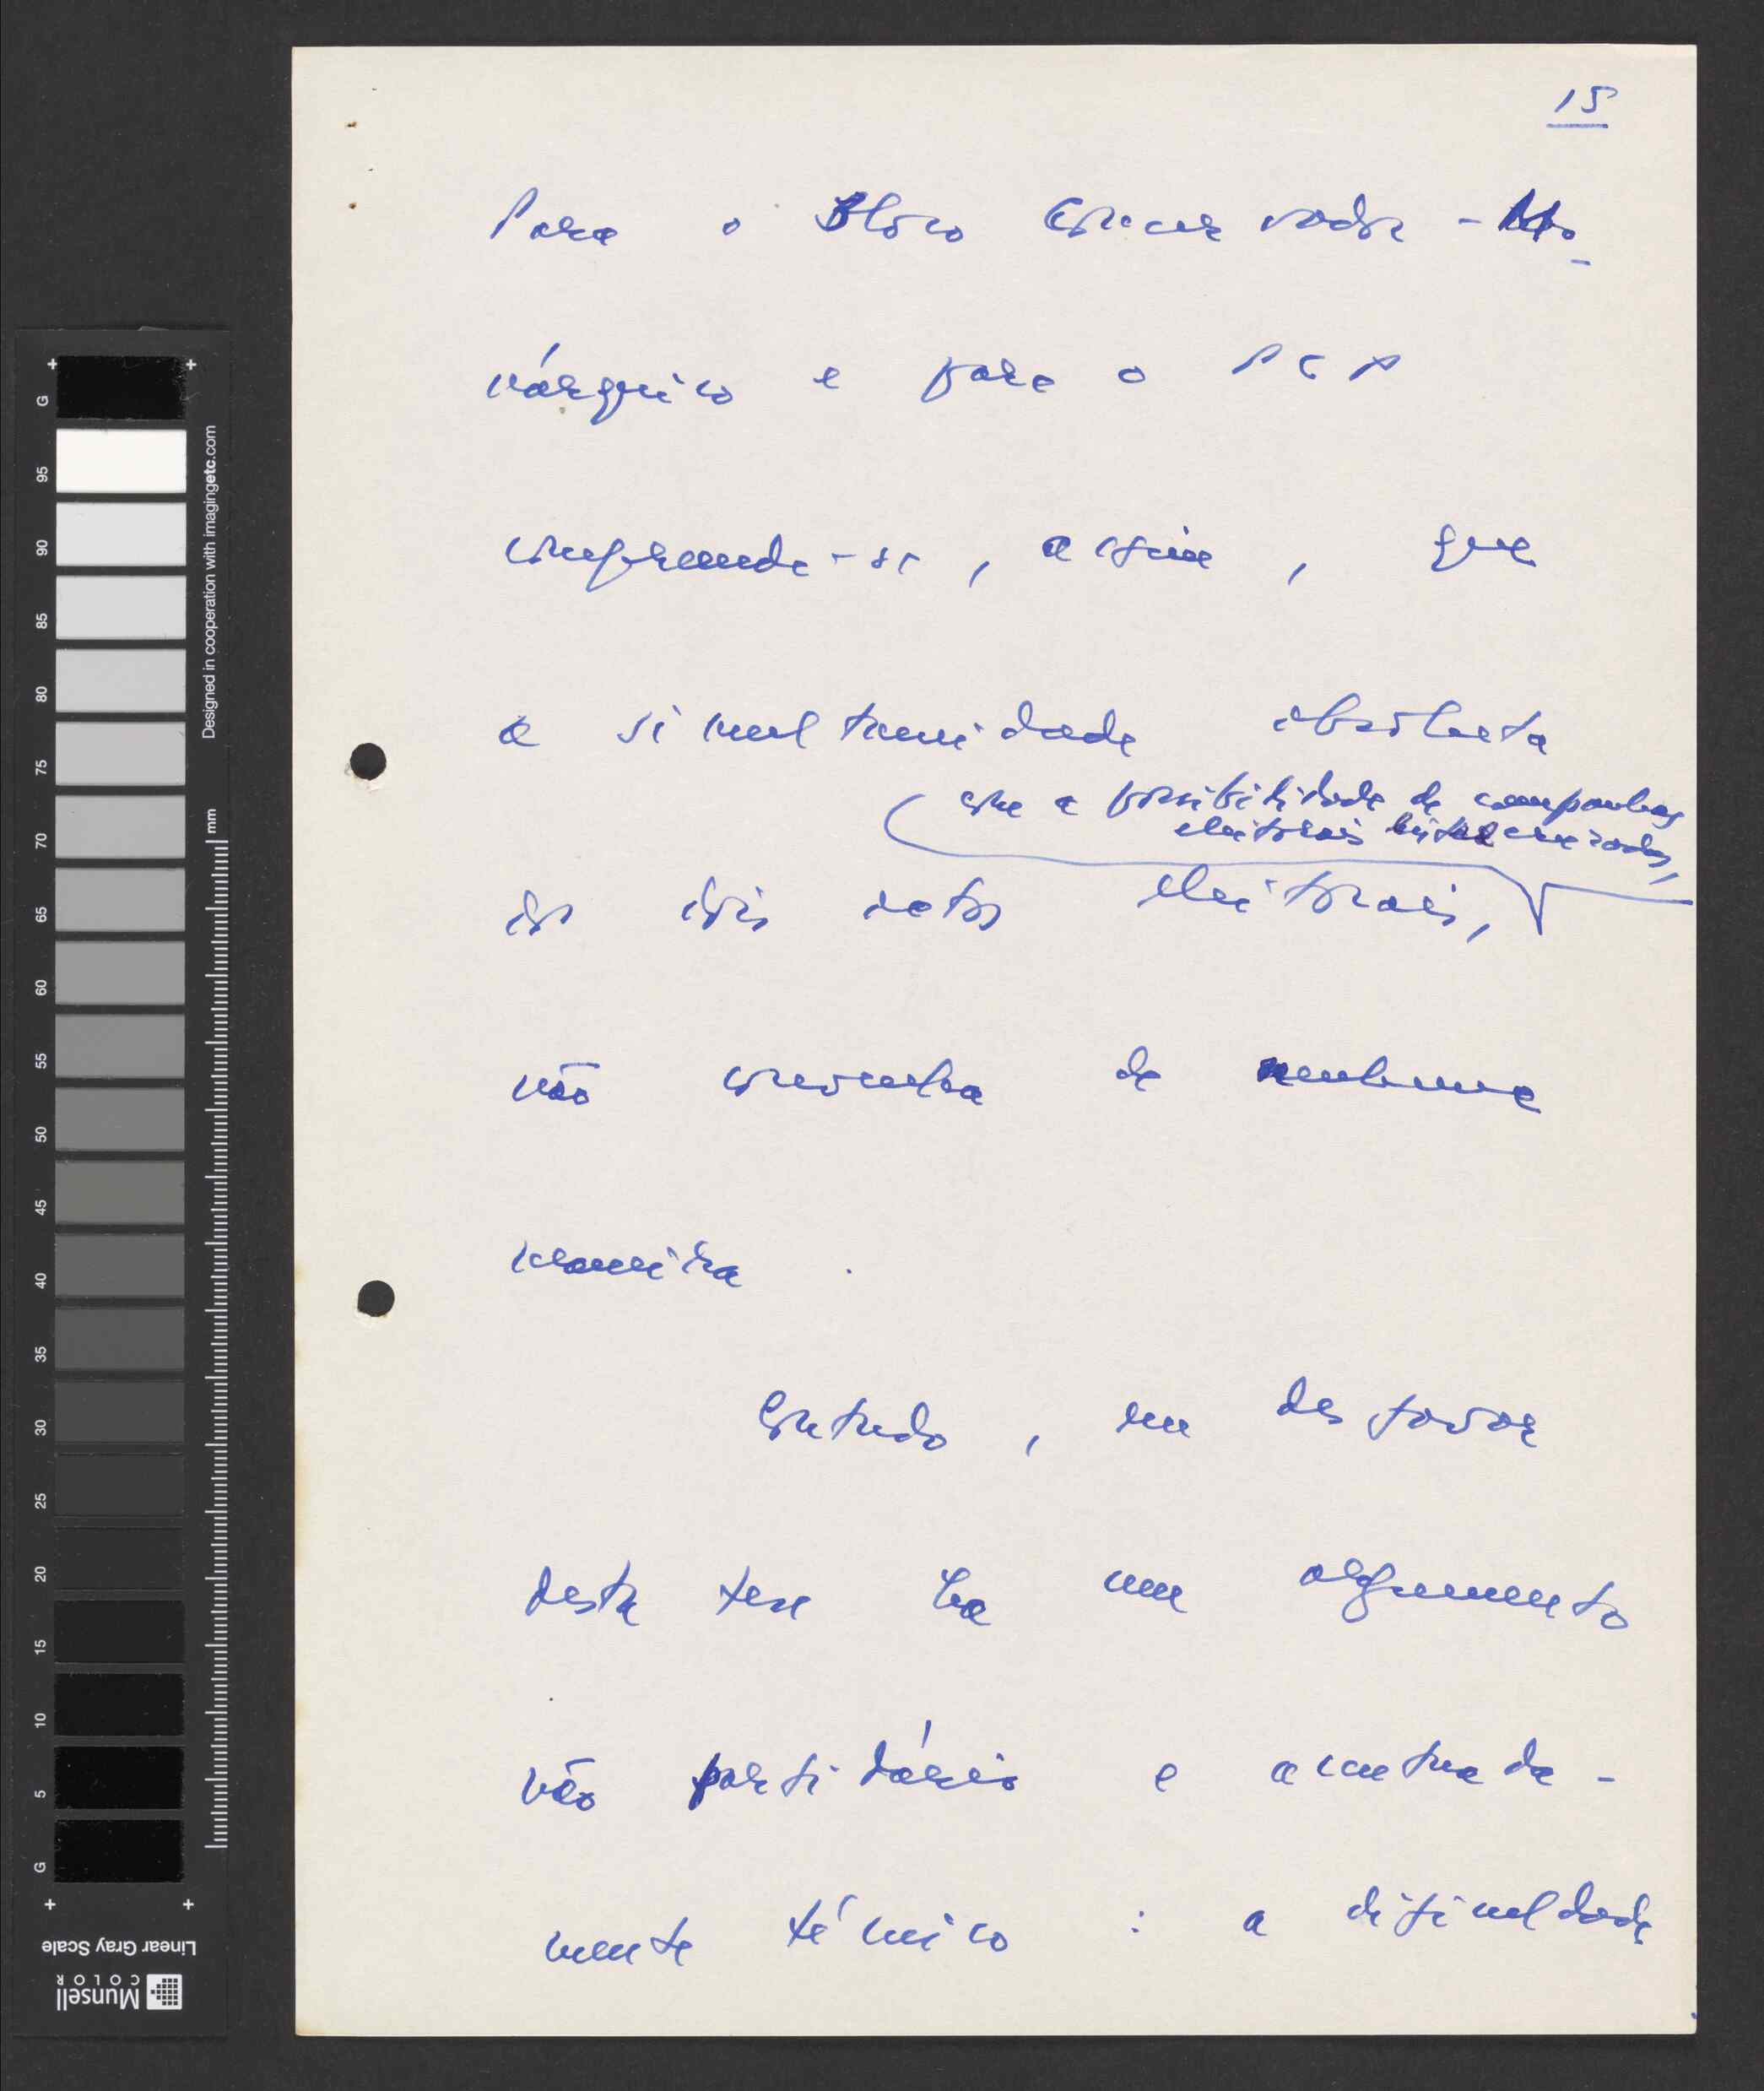 15
Para o Bloco Conservador-Mo-
nárquico e para o PCP
compreende-se, assim, que
a simultaneidade absoluta
com a possibilidade de campanhas
eleitorais
dos dois actos eleitorais,
não convenha de nenhuma
maneira.
Contudo, em desfavor
desta tese há um argumento
não partidário e acentuada-
mente técnico: a dificuldade
G 95 90 85 80 75 70 65 60 55 50 45 40 35 30 25 20 15 10 5 G
mm
Designed in cooperation with imagingetc.com
Linear Gray Scale
Munsell
COLOR